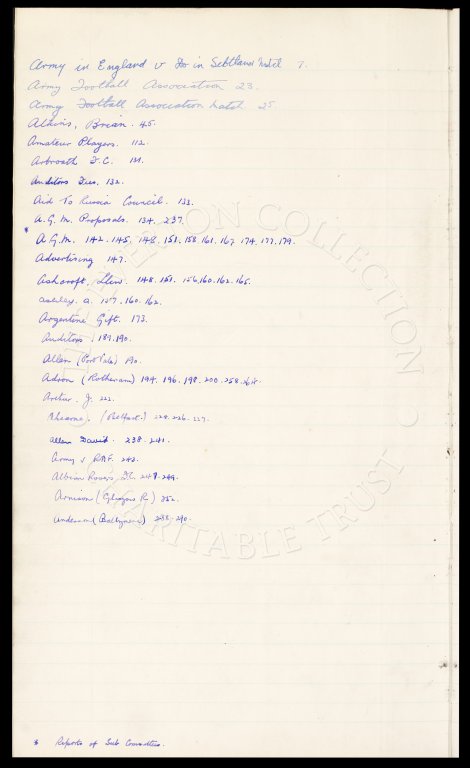 Army in England v Do in Scotland Match 7.
Army Football Association 23.
Army Football Association Match 25
Atkins, Brian. 45.
Amateur Players. 112.
Arbroath F.C. 131.
Auditors Fees, 132.
Aid To Russia Council. 133.
A.G.M. Proposals. 134. 237.
* A.G.M. 142. 145. 148. 151. 158. 161. 167. 174. 177. 179.
Advertising 147.
Ashcroft, Llew. 148. 151. 156. 160. 162. 165.
Ashley. A. 157. 160. 162.
Argentine Gift. 173.
Auditors. 189. 190.
Allen (Port Vale) 190.
Adron (Rotherham) 194. 196. 198. 200. 258. 264.
Arthur. J. 222.
Ahearne. (Belfast.) 224. 226. 227.
Allan David. 238. 241.
Army v R.A.F. 243.
Albion Rovers F.C. 247. 249.
Arnison (Glasgow R.) 252.
Anderson (Ballymena) 288. 290.
* Reports of Sub Committee.
COLLECTION
CHARITABLE TRUST